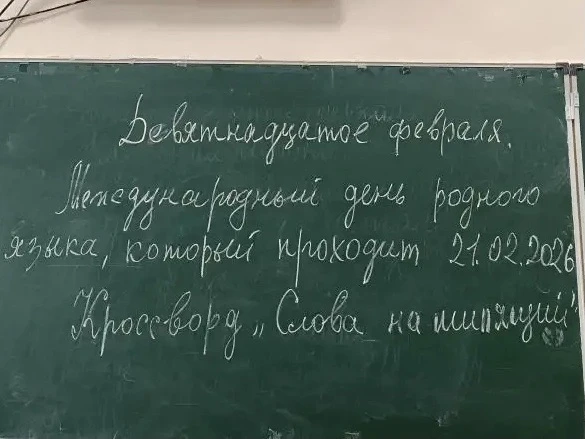 Девятнадцатое февраля.
Международный день родного
языка, который проходит 21.02.2026
Кроссворд „Слова на шипящий"